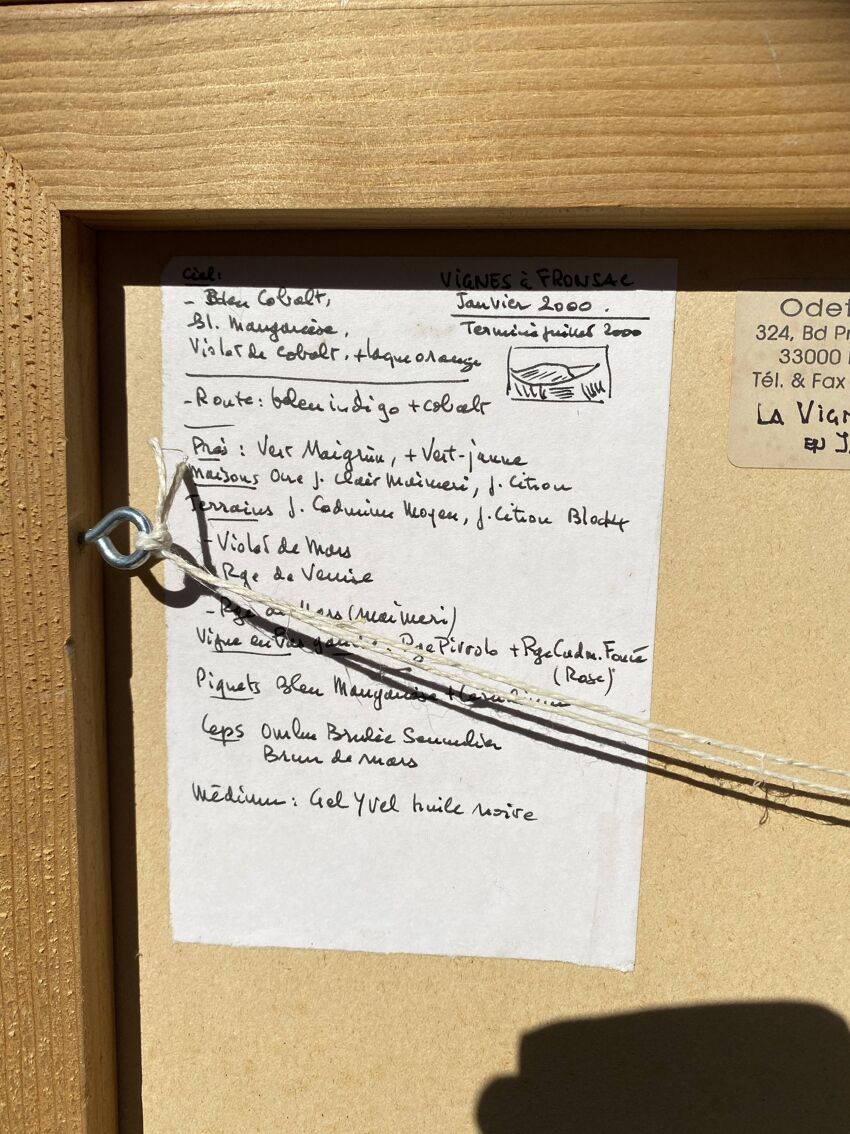 VIGNES à FRONSAC
Janvier 2000.
Terminé juillet 2000
Ciel:
- Bleu Cobalt,
Bl. Manganèse,
Violet de Cobalt, + laque orange
- Route: bleu indigo + cobalt
Prés: Vert Maigrun, + Vert-jaune
Maisons Ocre J. Clair Maimeri, J. Citron
Terrains J. Cadmium Moyen, J. Citron Blockx
- Violet de Mars
- Rge de Venise
- Rge de Mars (Maimeri)
Vigne en Rge Pivolo + Rge Cadm. Foncé
(Rose)
Piquets Bleu Manganèse +
Ceps Ombre Brulée Sennelier
Brun de mars
Médium: Gel Yvel huile noire
Odet
324, Bd Pr
33000
Tél. & Fax
LA VIGN
EN J